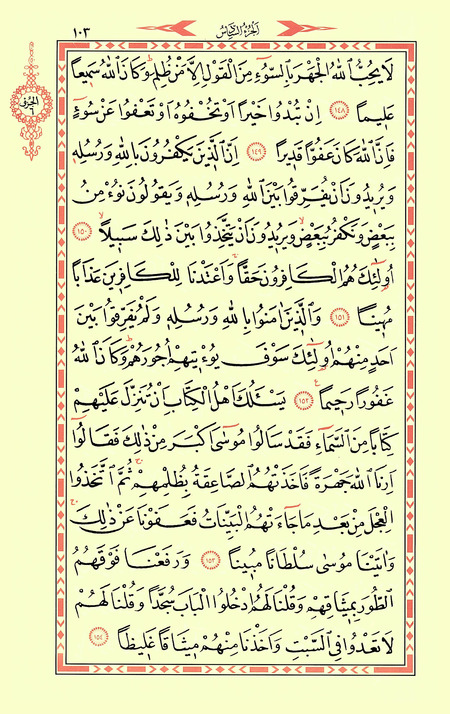 ١٠٣
الجزء السادس
الحزب
٦
لَا يُحِبُّ اللّٰهُ الْجَهْرَ بِالسُّوءِ مِنَ الْقَوْلِ اِلَّا مَنْ ظُلِمَ وَكَانَ اللّٰهُ سَمِيعًا
عَلِيمًا ﴿١٤٨﴾ اِنْ تُبْدُوا خَيْرًا اَوْ تُخْفُوهُ اَوْ تَعْفُوا عَنْ سُوءٍ
فَاِنَّ اللّٰهَ كَانَ عَفُوًّا قَدِيرًا ﴿١٤٩﴾ اِنَّ الَّذِينَ يَكْفُرُونَ بِاللّٰهِ وَرُسُلِهِ
وَيُرِيدُونَ اَنْ يُفَرِّقُوا بَيْنَ اللّٰهِ وَرُسُلِهِ وَيَقُولُونَ نُؤْمِنُ
بِبَعْضٍ وَنَكْفُرُ بِبَعْضٍ وَيُرِيدُونَ اَنْ يَتَّخِذُوا بَيْنَ ذٰلِكَ سَبِيلًا ﴿١٥٠﴾
اُولٰئِكَ هُمُ الْكَافِرُونَ حَقًّا وَاَعْتَدْنَا لِلْكَافِرِينَ عَذَابًا
مُهِينًا ﴿١٥١﴾ وَالَّذِينَ اٰمَنُوا بِاللّٰهِ وَرُسُلِهِ وَلَمْ يُفَرِّقُوا بَيْنَ
اَحَدٍ مِنْهُمْ اُولٰئِكَ سَوْفَ يُؤْتِيهِمْ اُجُورَهُمْ وَكَانَ اللّٰهُ
غَفُورًا رَحِيمًا ﴿١٥٢﴾ يَسْـَٔلُكَ اَهْلُ الْكِتَابِ اَنْ تُنَزِّلَ عَلَيْهِمْ
كِتَابًا مِنَ السَّمَاءِ فَقَدْ سَاَلُوا مُوسٰى اَكْبَرَ مِنْ ذٰلِكَ فَقَالُوا
اَرِنَا اللّٰهَ جَهْرَةً فَاَخَذَتْهُمُ الصَّاعِقَةُ بِظُلْمِهِمْ ثُمَّ اتَّخَذُوا
الْعِجْلَ مِنْ بَعْدِ مَا جَاءَتْهُمُ الْبَيِّنَاتُ فَعَفَوْنَا عَنْ ذٰلِكَ
وَاٰتَيْنَا مُوسٰى سُلْطَانًا مُبِينًا ﴿١٥٣﴾ وَرَفَعْنَا فَوْقَهُمُ
الطُّورَ بِمِيثَاقِهِمْ وَقُلْنَا لَهُمُ ادْخُلُوا الْبَابَ سُجَّدًا وَقُلْنَا لَهُمْ
لَا تَعْدُوا فِي السَّبْتِ وَاَخَذْنَا مِنْهُمْ مِيثَاقًا غَلِيظًا ﴿١٥٤﴾